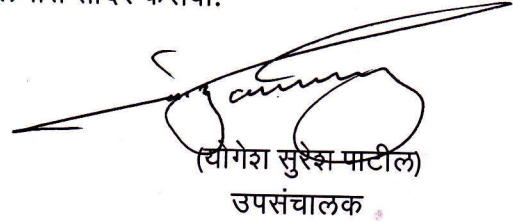 सादर करावा.
(योगेश सुरेश पाटील)
उपसंचालक